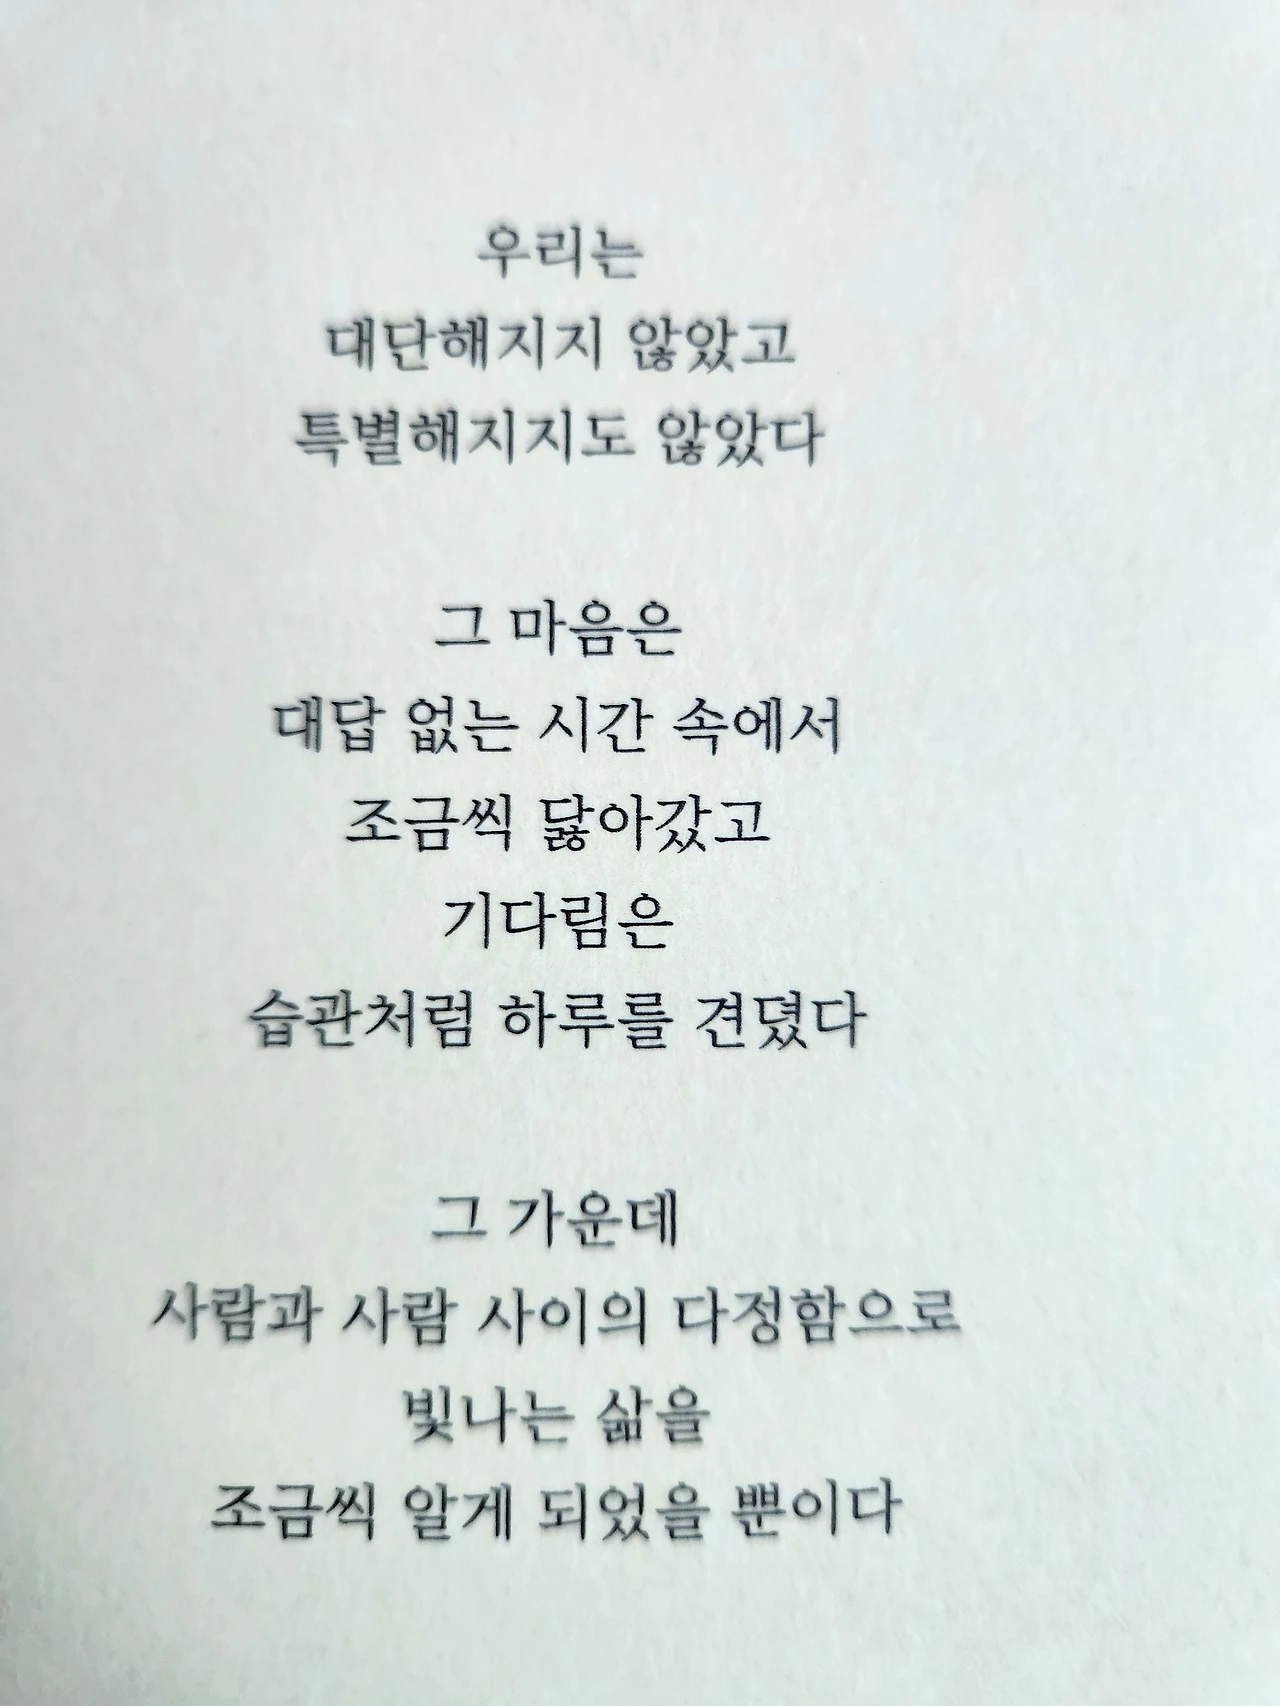 우리는
대단해지지 않았고
특별해지지도 않았다
그 마음은
대답 없는 시간 속에서
조금씩 닳아갔고
기다림은
습관처럼 하루를 견뎠다
그 가운데
사람과 사람 사이의 다정함으로
빛나는 삶을
조금씩 알게 되었을 뿐이다